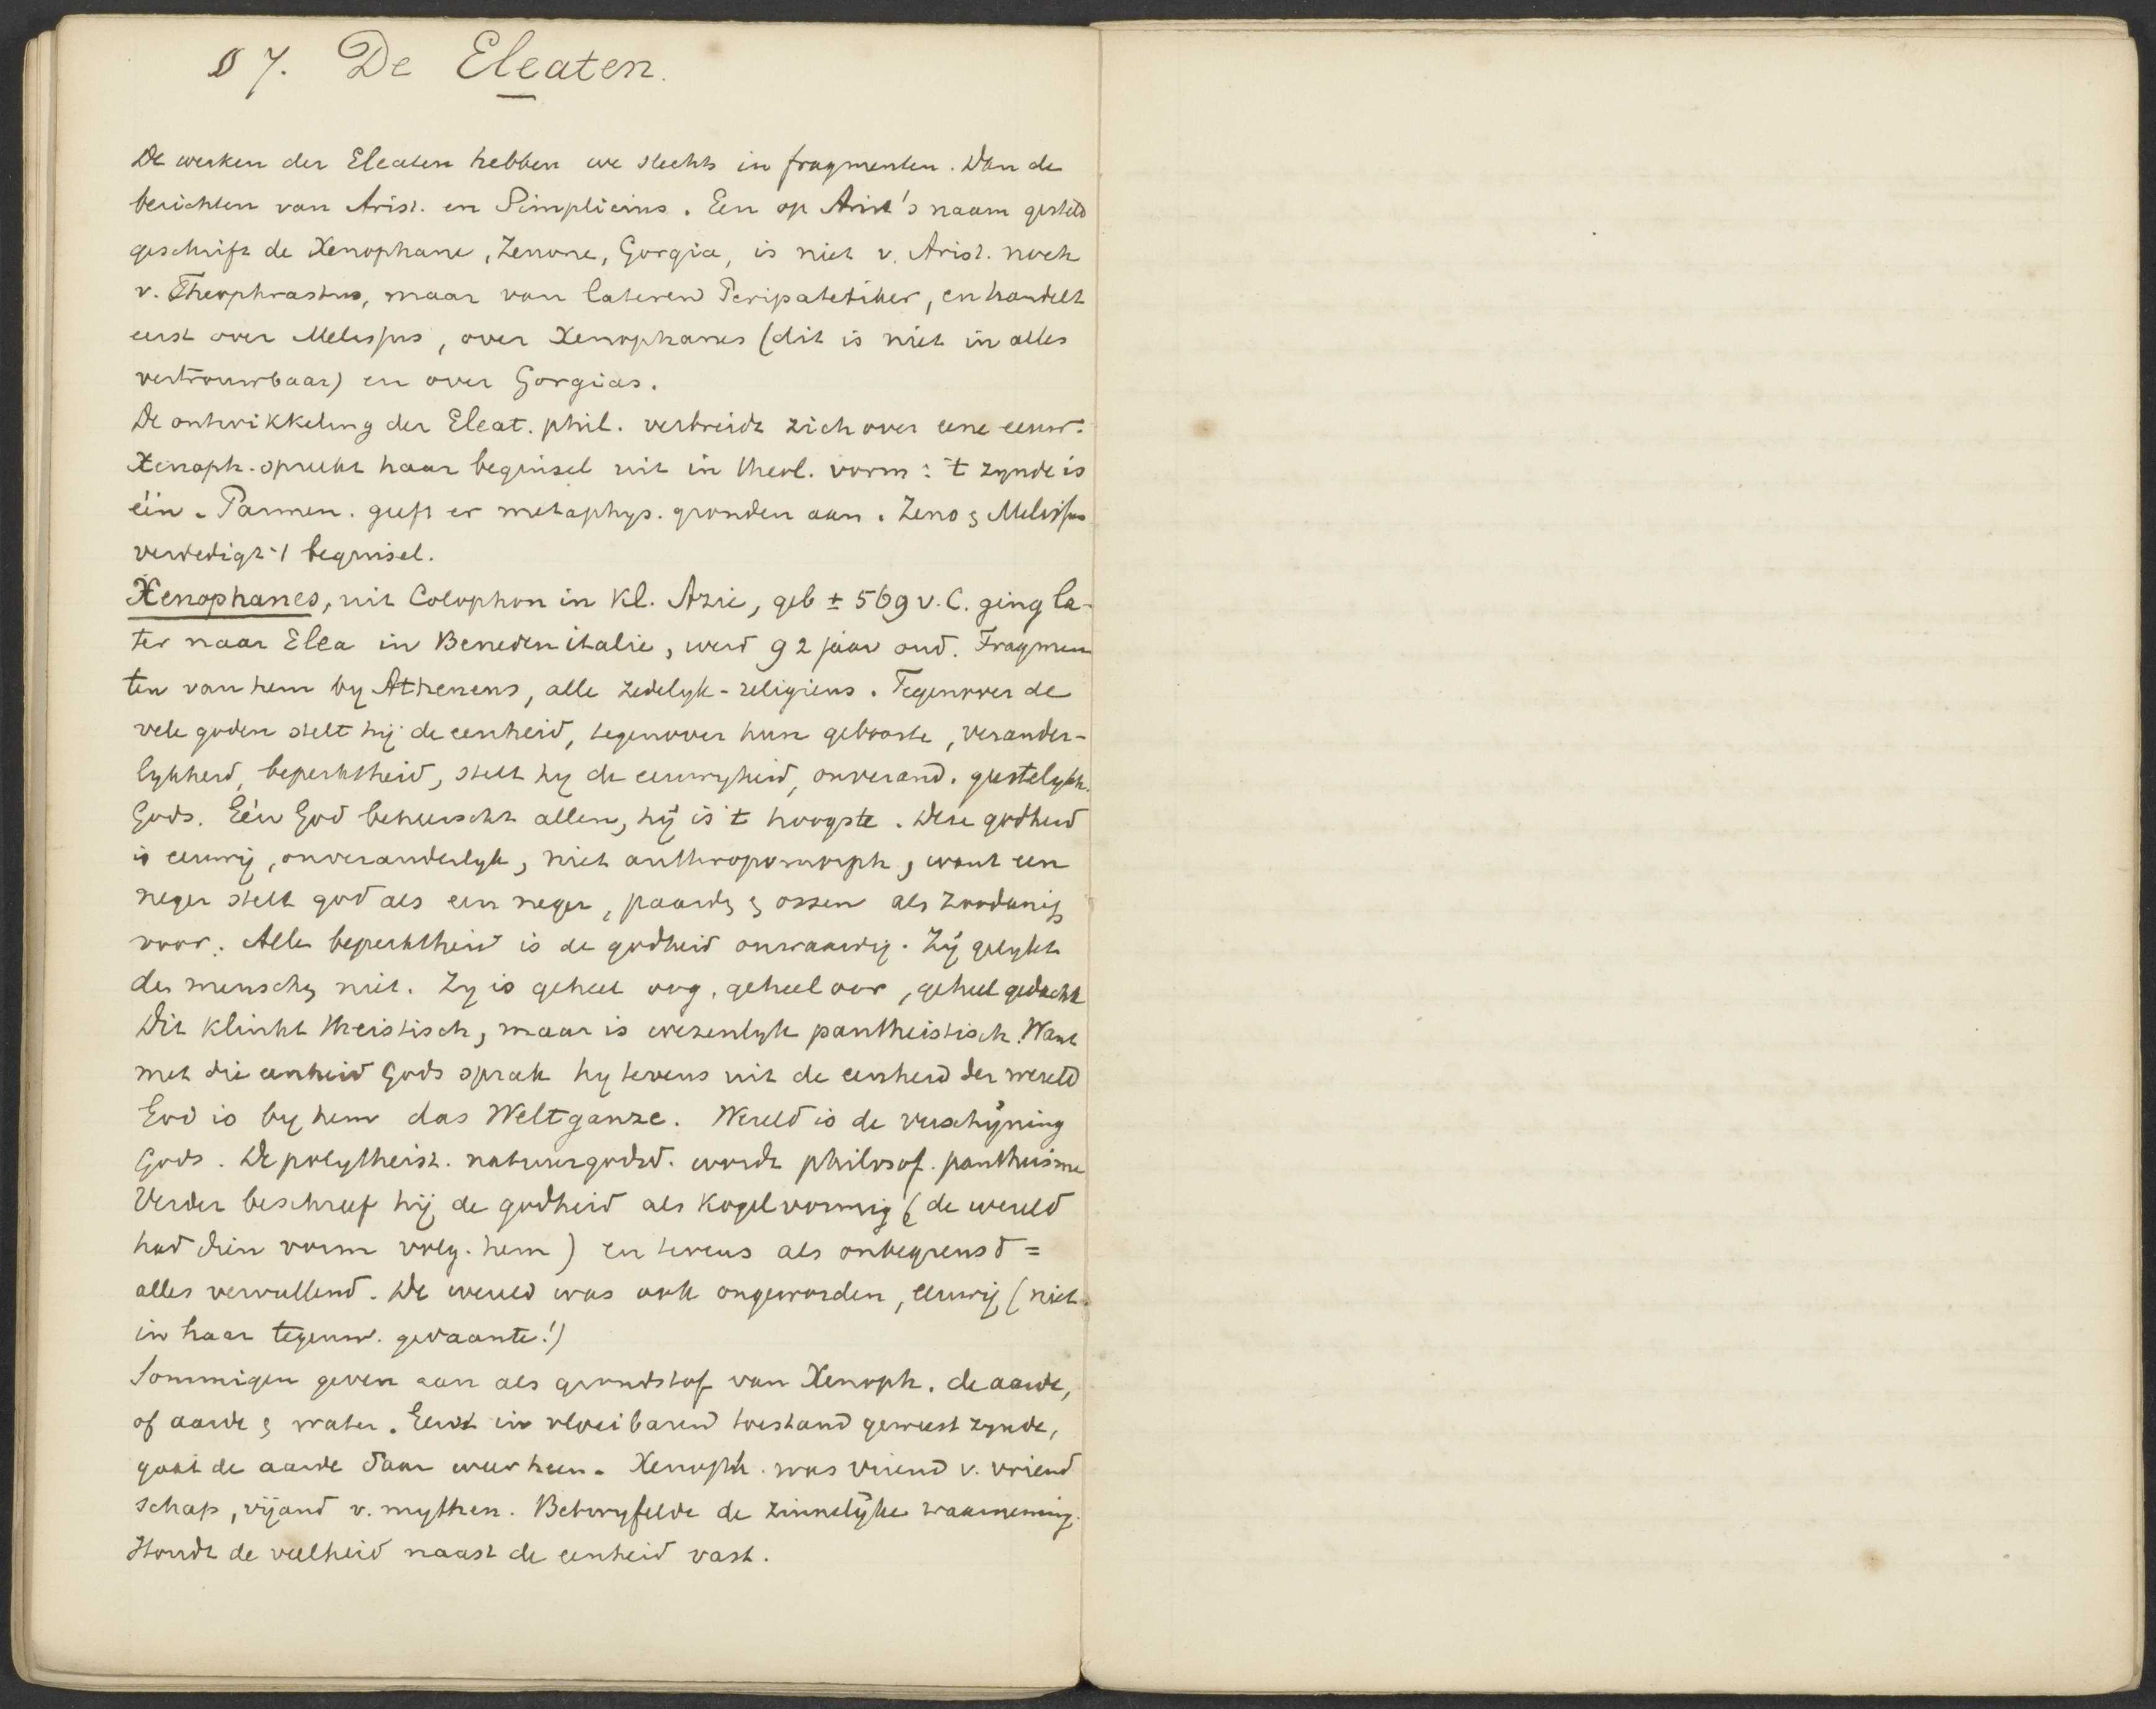 § 7. De Eleaten.
De werken der Eleaten hebben we slechts in fragmenten. Dan de
berichten van Arist. en Simplicius. Een op Arist's naam gesteld
geschrift de Xenophane, Zenone, Gorgia, is niet v. Arist. noch
v. Theophrastus, maar van lateren Peripatetiker, en handelt
eerst over Melissus, over Xenophanes (dit is niet in alles
vertrouwbaar) en over Gorgias.
De ontwikkeling der Eleat. phil. verbreidt zich over eene eeuw.
Xenoph. spreekt haar beginsel uit in theol. vorm: 't zynde is
één. Parmen. geeft er metaphys. gronden aan. Zeno & Melissus
verdedigt 't beginsel.
Xenophanes, uit Colophon in Kl. Azie, geb ± 569 v. C. ging la-
ter naar Elea in Beneden italie, werd 92 jaar oud. Fragmen
ten van hem by Athenens, alle zedelyk-religieus. Tegenover de
vele goden stelt hij de eenheid, tegenover hun geboorte, verander-
lykheid, beperktheid, stelt hy de eeuwigheid, onverand. geestelykh.
Gods. Eén God beheerscht allen, hij is 't hoogste. Deze godheid
is eeuwig, onveranderlyk, niet anthropomorph, want een
neger stelt god als een neger, paarden & ossen als zoodanig
voor. Alle beperktheid is de godheid onwaardig. Zij gelykt
den menschen niet. Zy is geheel oog, geheel oor, geheel gedacht
Dit klinkt theistisch, maar is wezenlyk pantheistisch. Want
met die eenheid Gods sprak hy tevens uit de eenheid der wereld
God is by hem das Weltganze. Wereld is de verschijning
Gods. De polytheist. natuurgodsd. wordt philosof. pantheisme
Verder beschreef hij de godheid als kogelvormig (de wereld
had dien vorm volg. hem) en tevens als onbegrensd =
alles vervullend. De wereld was ook ongeworden, eeuwig (niet
in haar tegenw. gedaante!)
Sommigen geven aan als grondstof van Xenoph. de aarde,
of aarde & water. Eerst in vloeibaren toestand geweest zynde,
gaat de aarde daar weer heen. Xenoph. was vriend v. vriend
schap, vijand v. mythen. Betwyfelde de zinnelijke waarneming.
Houdt de veelheid naast de eenheid vast.